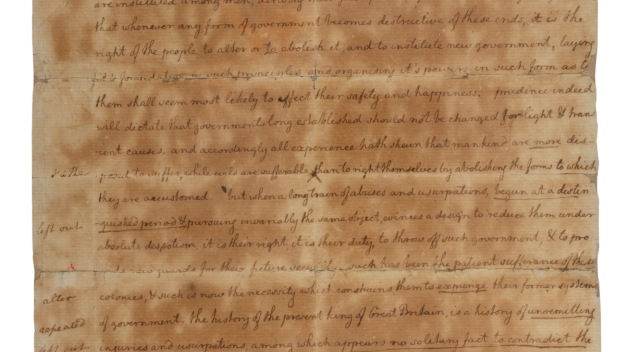 are instituted among men, deriving
that whenever any form of government becomes destructive of these ends, it is the
right of the people to alter or to abolish it, and to institute new government, laying
it's foundation on such principles and organising it's powers in such form as to
them shall seem most likely to effect their safety and happiness. prudence indeed
will dictate that governments long established should not be changed for light & tran
sient causes. and accordingly all experience hath shewn that mankind are more dis
posed to suffer, while evils are sufferable than to right themselves by abolishing the forms to which
they are accustomed. but when a long train of abuses and usurpations, begun at a distin
left out
guished period & pursuing invariably the same object, evinces a design to reduce them under
absolute despotism, it is their right, it is their duty, to throw off such government, & to pro
vide new guards for their future security. such has been the patient sufferance of these
alter
colonies, & such is now the necessity which constrains them to expunge their former systems
repeated
of government. the history of the present king of Great Britain, is a history of unremitting
left out
injuries and usurpations, among which appears no solitary fact to contradict the